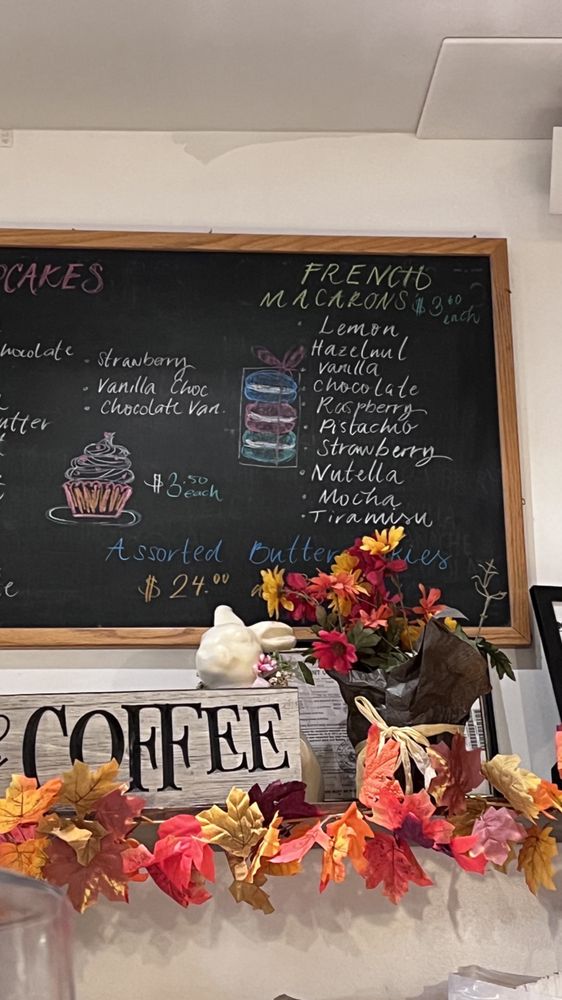 PCAKES
hocolate
utter
· Strawberry
· Vanilla Choc
· Chocolate Van.
$3.50
each
FRENCH
MACARONS $3.60
each
· Lemon
· Hazelnut
· Vanilla
· Chocolate
· Raspberry
· Pistachio
· Strawberry
· Nutella
· Mocha
· Tiramisu
Assorted Butter kies
$24.00
COFFEE